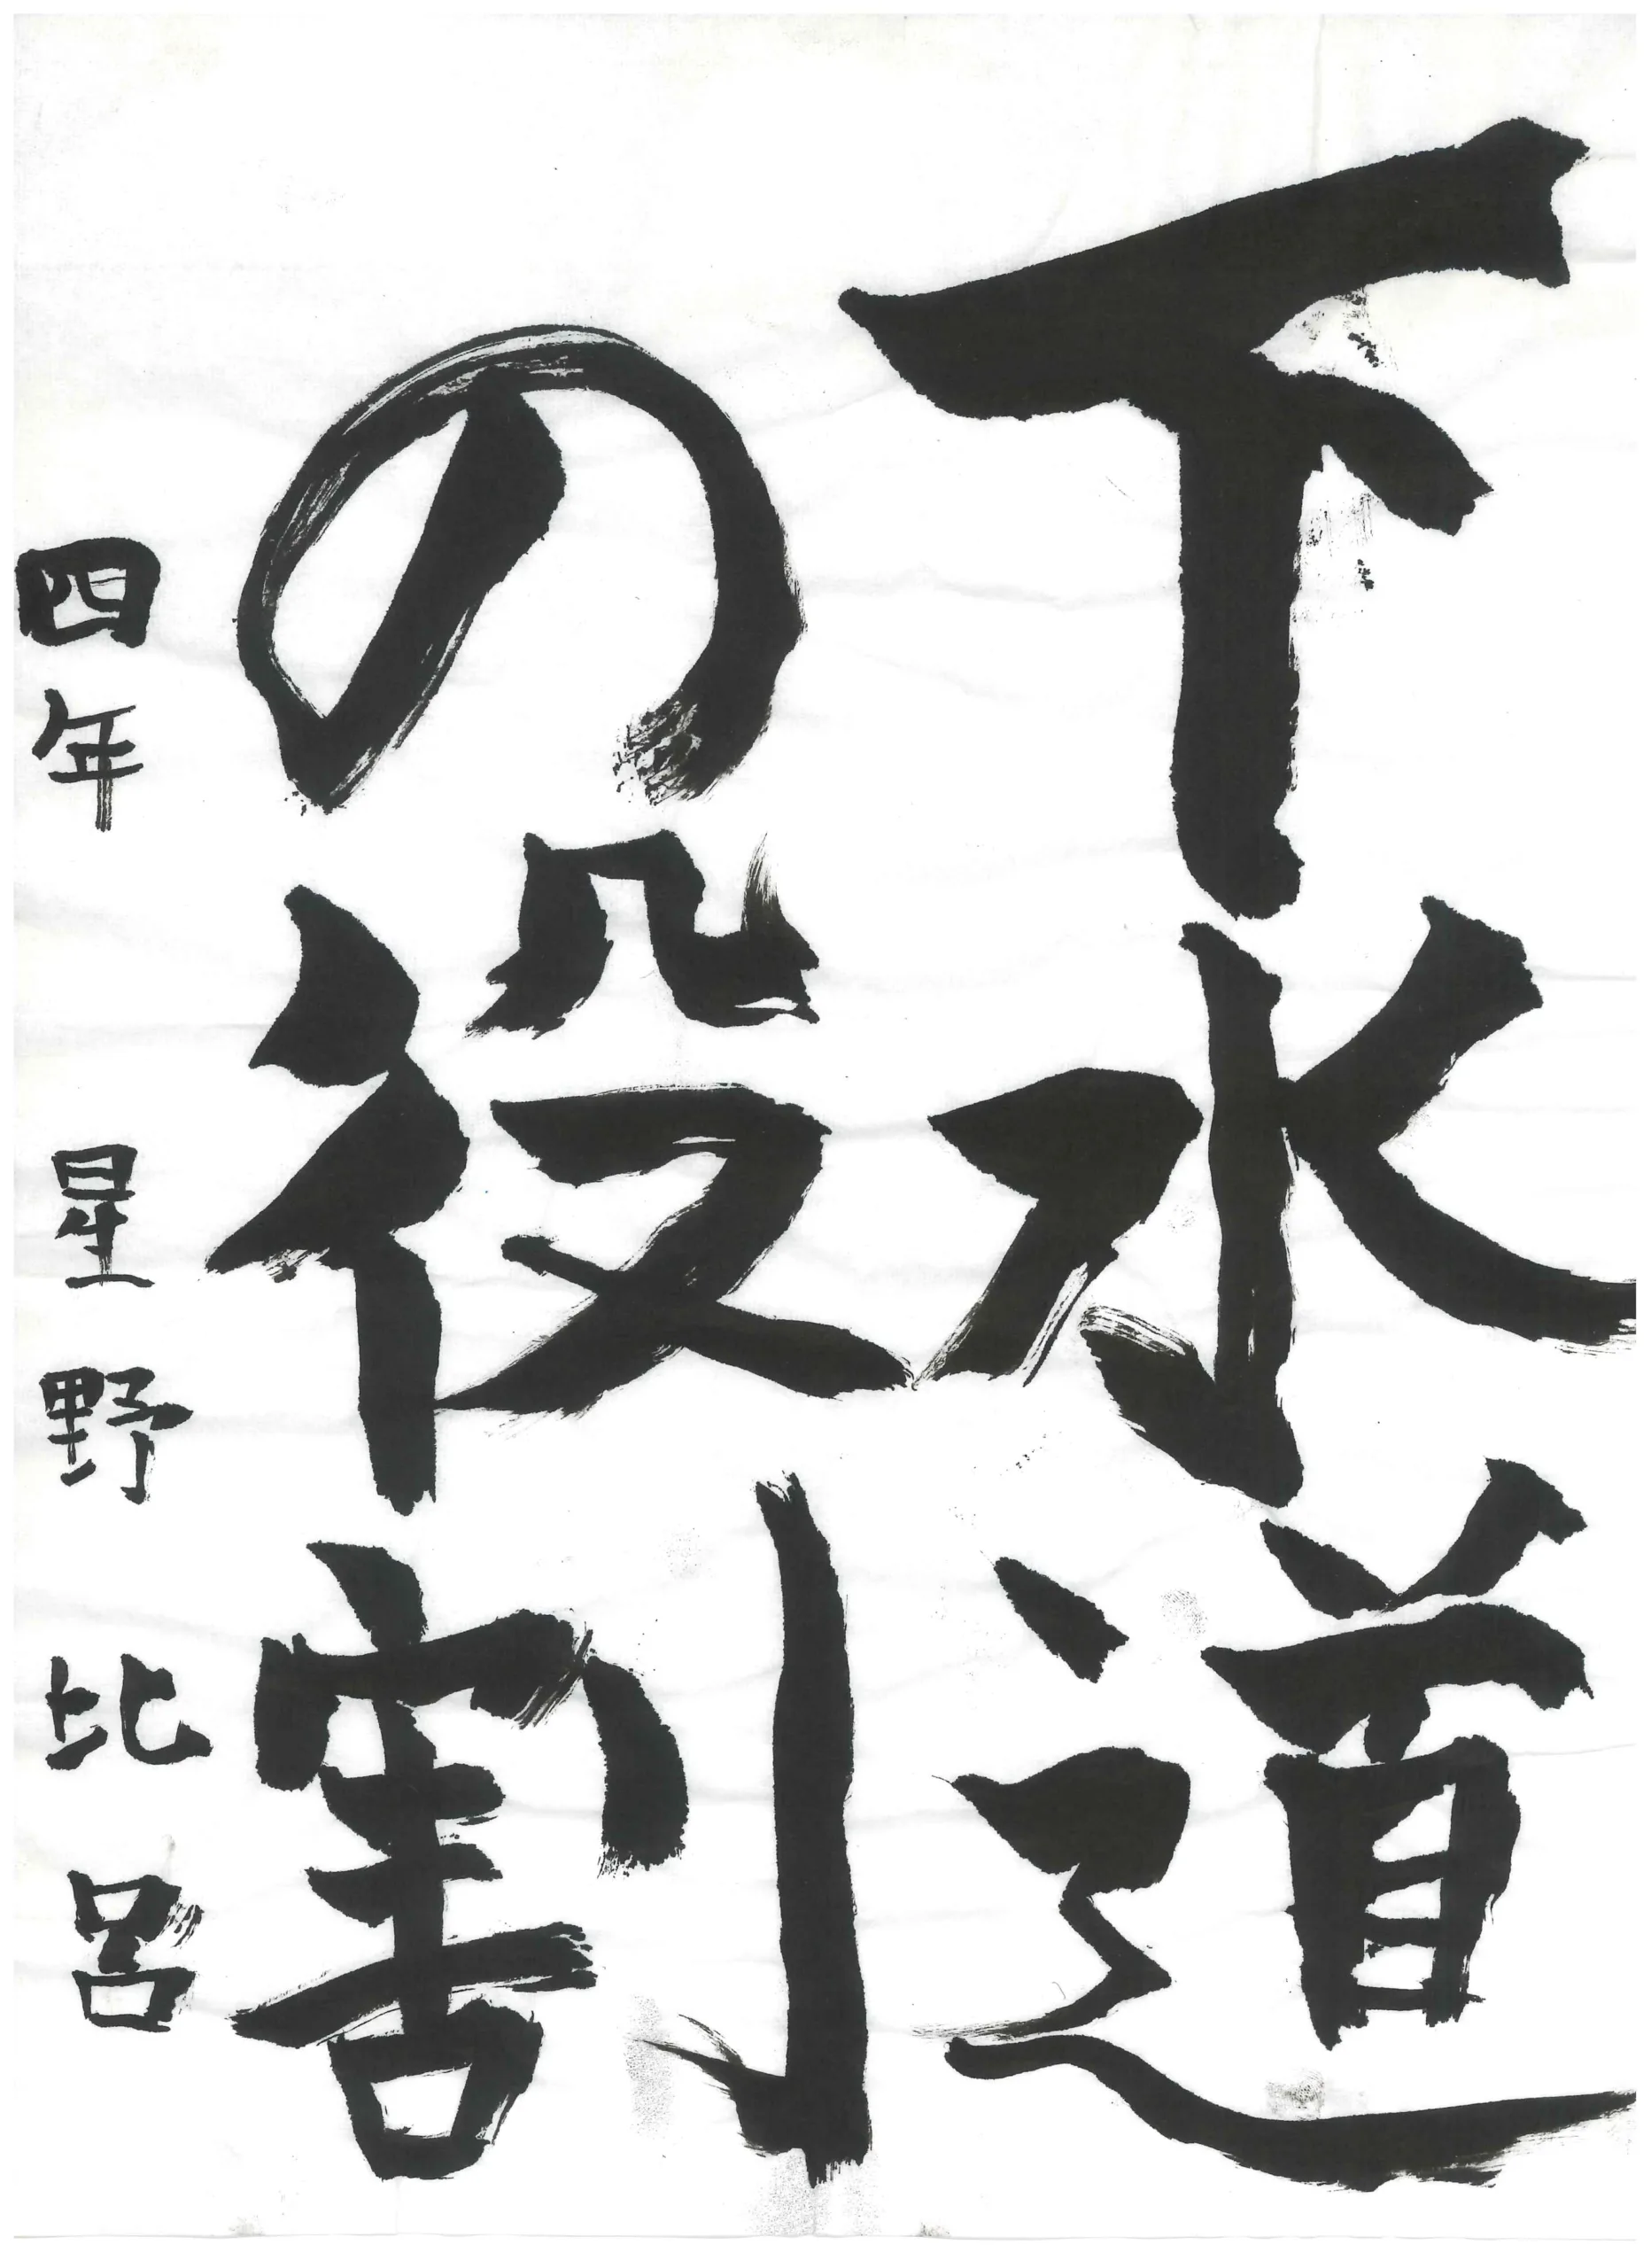 下水道
の役割
四年 星野比呂